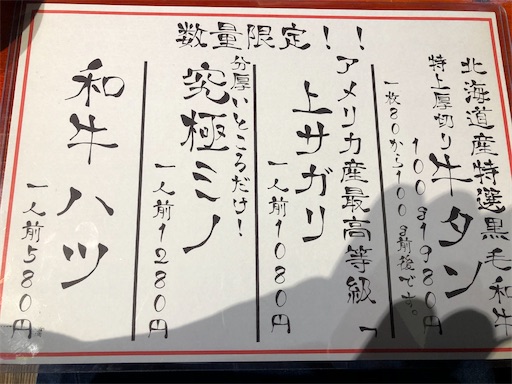 数量限定！！
北海道産特選黒毛和牛
特上厚切り牛タン
100g1980円
一枚80から100g前後です。
アメリカ産最高等級
上サガリ
一人前1080円
分厚いところだけ！
究極ミノ
一人前1280円
和牛ハツ
一人前580円